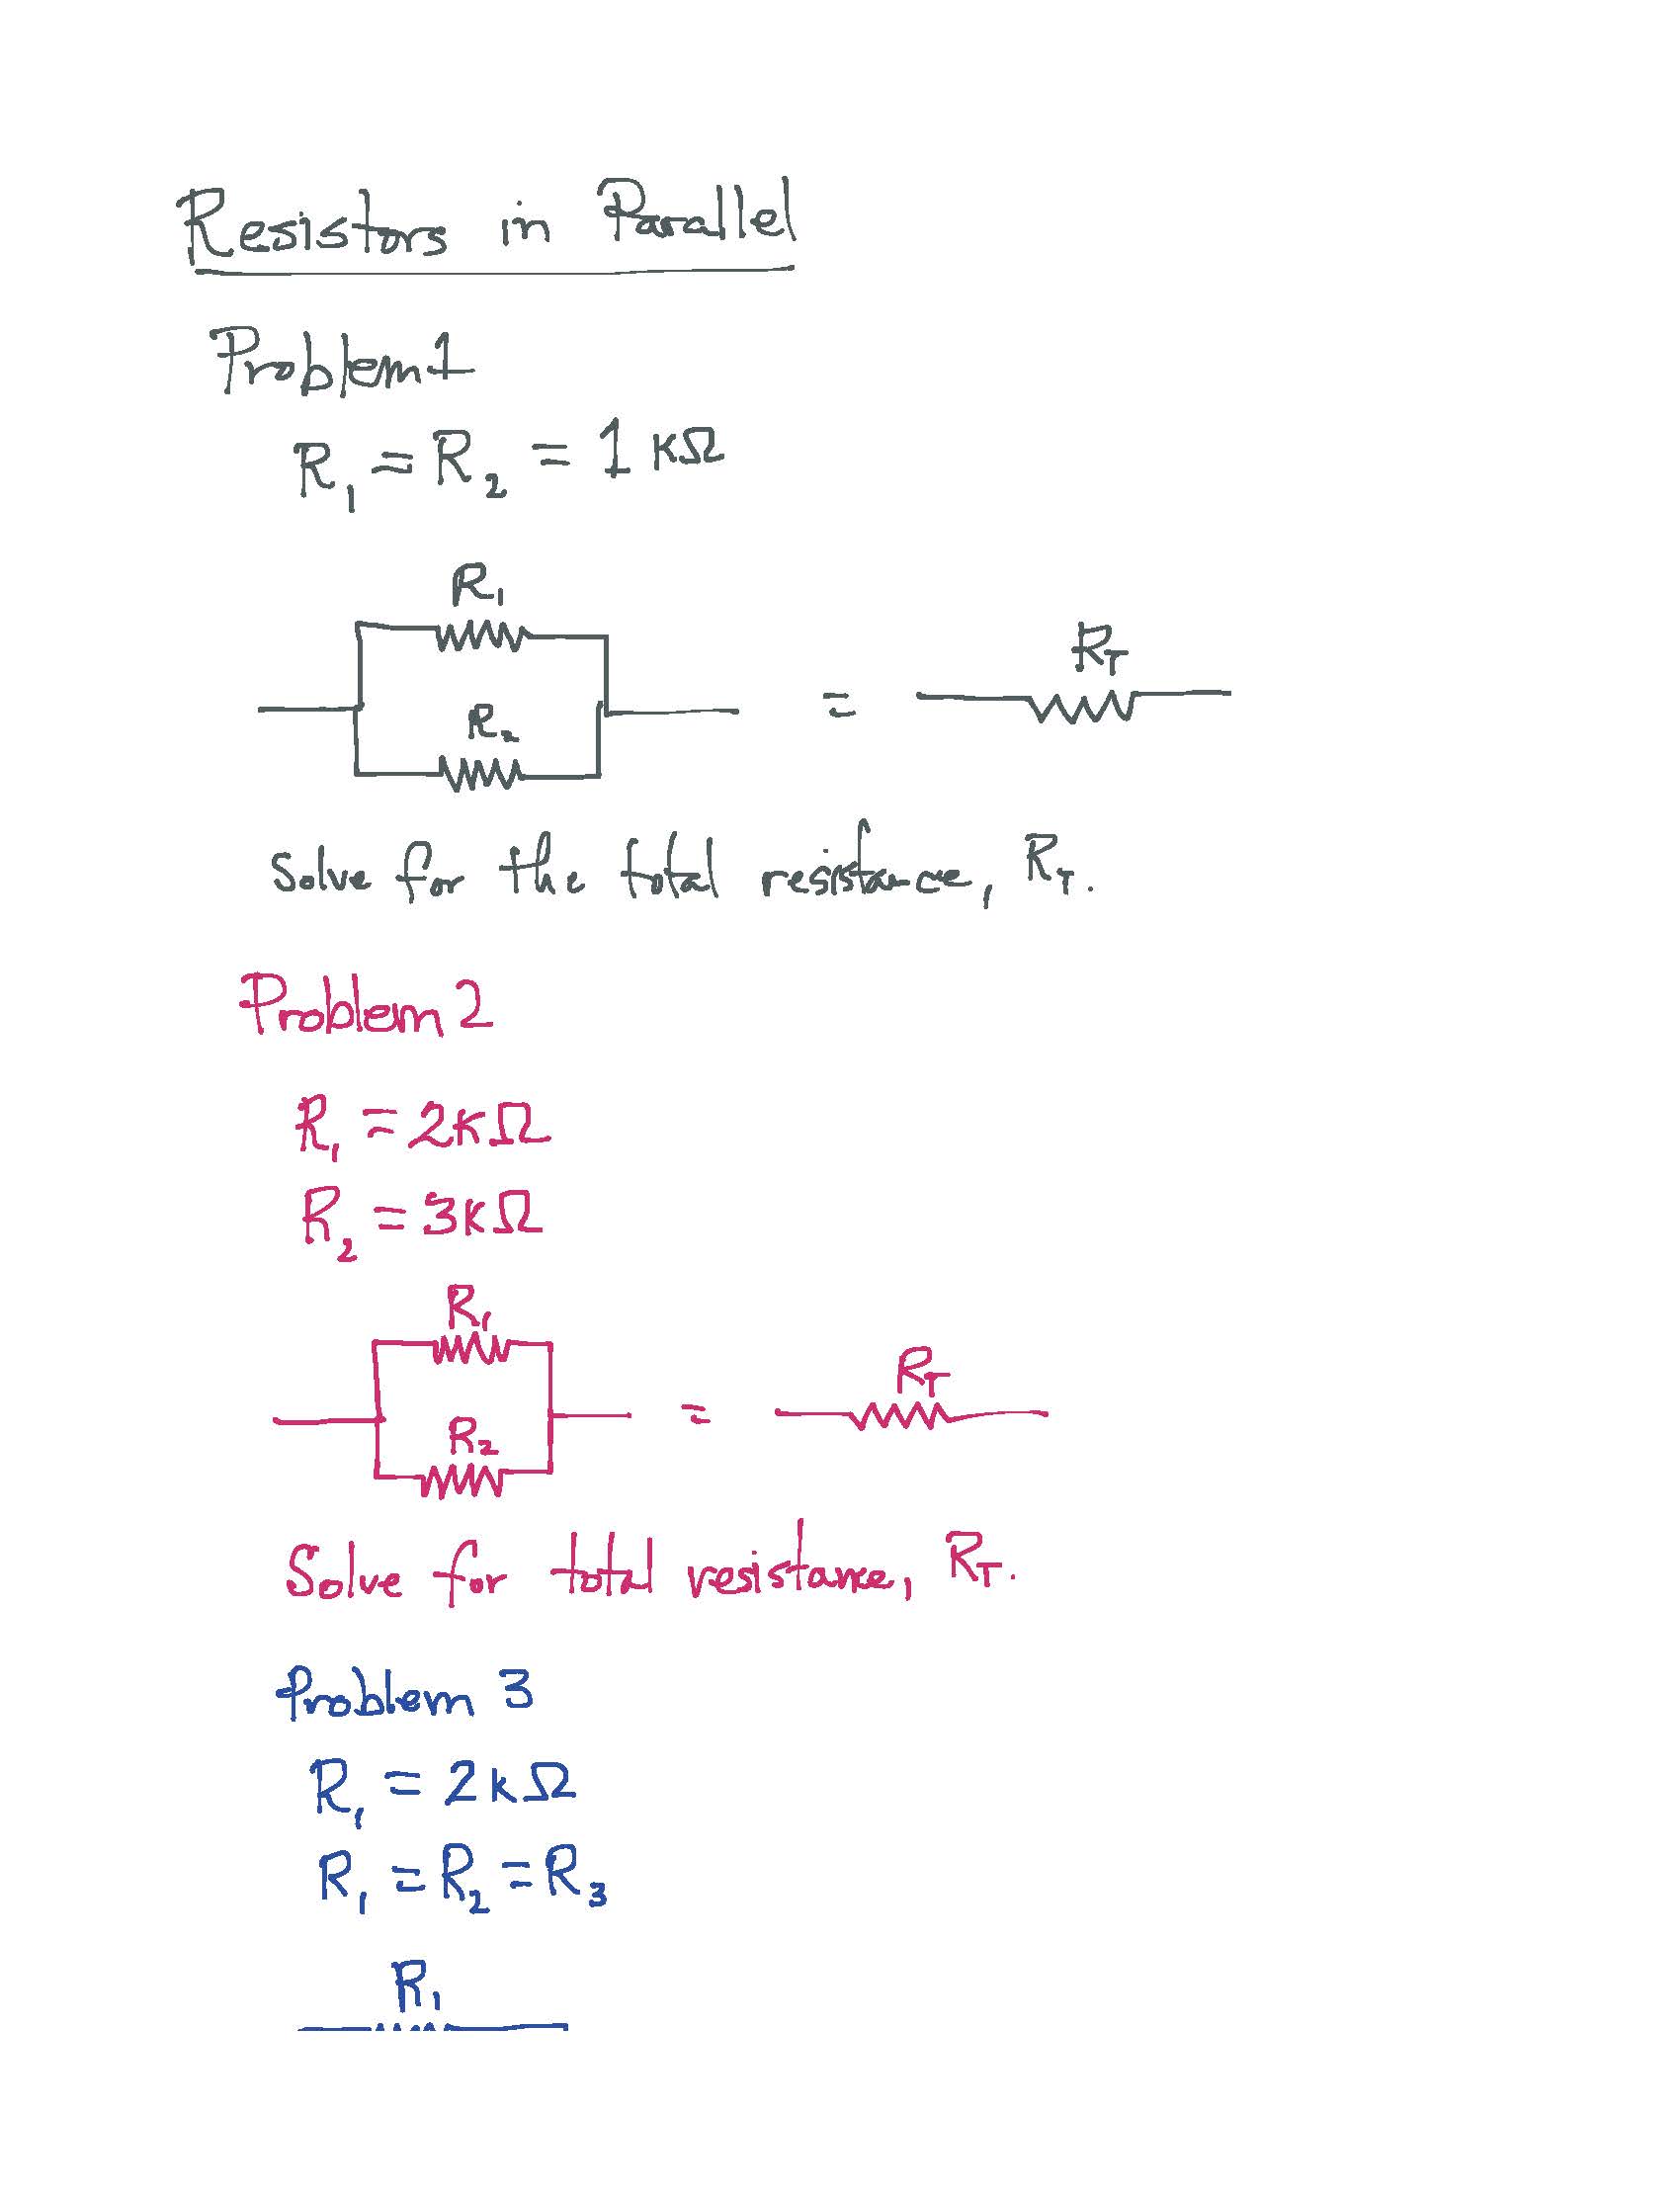 Resistors in Parallel
Problem 1
R₁ = R₂ = 1 KΩ
R₁
R₂
=
R_T
Solve for the total resistance, R_T.
Problem 2
R₁ = 2KΩ
R₂ = 3KΩ
R₁
R₂
=
R_T
Solve for total resistance, R_T.
Problem 3
R₁ = 2kΩ
R₁ = R₂ = R₃
R₁